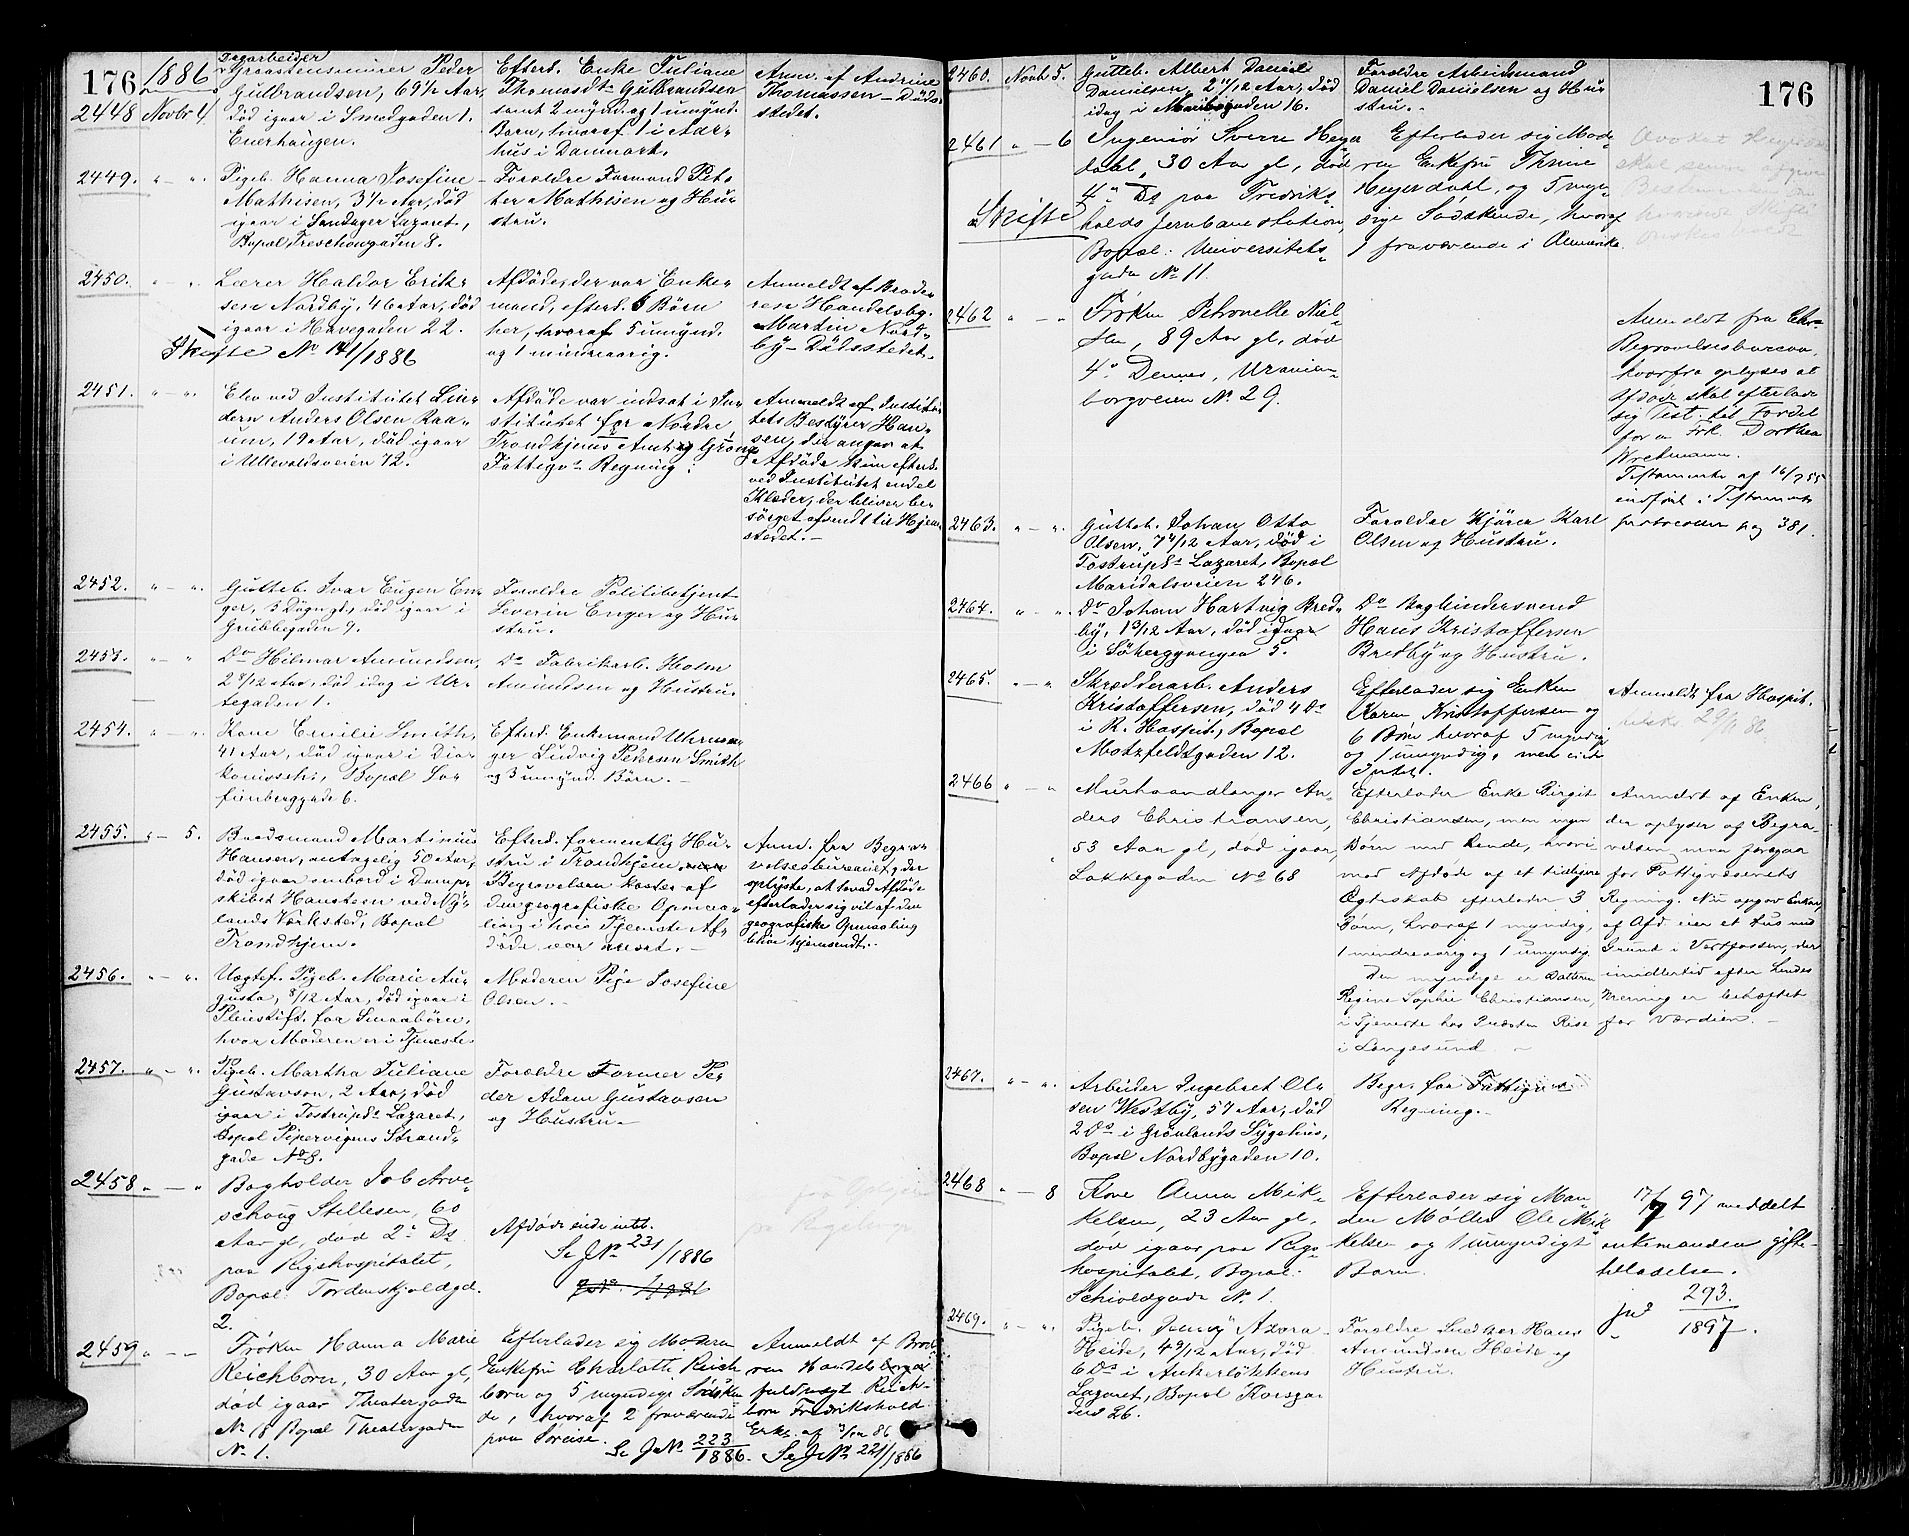 176
1886
2448 Novbr 4
Dagarbeider
Graastensmurer Peder
Gulbrandsen, 69 1/2 Aar,
död igaar i Smedgaden 1.
Enerhaugen.
Efterl. Enke Juliane
Thomasdtr Gulbrandsen
samt 2 mynd. og 1 umynd.
Barn, hvoraf 1 i Aar-
hus i Danmark.
Anm. af Andrine
Thomassen – Döds-
stedet.
2449. " – "
Pigeb. Hanna Josefine
Mathisen, 3 1/2 Aar, död
igaar i Sandager Lazaret,
Bopæl, Treschowgaden 8.
Forældre Formand Pet-
ter Mathisen og Hu-
stru.
2450. " – "
Lærer Haldor Erik-
sen Nordby, 46 Aar, död
igaar i Havegaden 22.
Skifte No 141/1886
Afdöde, der var Enke-
mand, efterl. 6 Börn
her, hvoraf 5 umynd.
og 1 mindreaarig.
Anmeldt af Brode-
ren Handelsbg.
Martin Nord-
by – Dödsstedet.
2451. " – "
Elev ved Institutet Lin-
dern Anders Olsen Raa-
um, 19 Aar, död igaar
i Ullevoldsveien 72.
Afdöde var indsat i In-
stitutet for Nordre
Trondhjems Amt og Grong
Fattigvs Regning.
Anmeldt af Institu-
tets Bestyrer Han-
sen, der angav at
Afdöde kun efterl.
ved Institutet endel
Klæder, der bliver be-
sörget afsendt til Hjem-
stedet. –
2452. " – "
Gutteb. Ivar Eugen En-
ger, 5 Dage gl., död igaar i
Grubbegaden 9.
Forældre Politibetjent
Severin Enger og Hu-
stru.
2453. " – "
Do Hilmar Amundsen,
2 8/12 Aar, död idag i Ur-
tegaden 1.
Do Fabrikarb. Holm
Amundsen og Hustru.
2454. " – "
Kone Emilie Smith,
41 Aar, död igaar i Dia-
konissehs., Bopæl So-
fienberggade 6.
Efterl. Enkemand Uhrma-
ger Ludvig Petersen Smith
og 3 umynd. Börn. –
2455. " – 5.
Baadsmand Martinus
Hansen, antagelig 50 Aar,
död igaar ombord i Damp-
skibet Hansteen ved Ny-
lands Værksted, Bopæl
Trondhjem.
Efterl. formentlig Hu-
stru i Trondhjem
Begravelsen kostes af
den geografiske Opmaa-
ling i hvis Tjeneste Af-
döde var ansat. –
Anm. fra Begra-
velsesbureauet, der
oplyste, at hvad Afdöde
efterlader sig vil af den
geografiske Opmaaling
blive hjemsendt. –
2456. " – "
Uægtef. Pigeb. Marie Au-
gusta, 8/12 Aar, död igaar i
Pleiestift. for Smaabörn,
hvor Moderen er i Tjeneste.
Moderen Pige Josefine
Olsen. –
2457. " – "
Pigeb. Martha Juliane
Gustavson, 2 Aar, död
igaar i Tostrupds Lazaret,
Bopæl Pipervigens Strand-
gade No 8.
Forældre Former Pe-
der Adam Gustavsen
og Hustru. –
2458 " – "
Bogholder Job Arve-
schoug Stillesen, 60
Aar gl, död 2' Ds
paa Rigshospitalet,
Bopæl: Tordenskjoldsgd.
2.
Afdöde eiede intet.
Se J No 231/1886
2459 " – "
Fröken Hanna Marie
Reichborn, 30 Aar gl,
död igaar Theatergaden
No 18 Bopæl Theatergaden
No 1.
Efterlader sig Moderen
Enkefru Charlotte Reich-
born og 5 myndige Södsken-
de, hvoraf 2 fraværende
paa Söreise.
Se J No 223/1886.
Anmeldt af Brode-
ren Handelsborger
fuldmægt Reich-
born Fredrikshald.
Se J No 221/1886
176
2460. Novbr 5.
Gutteb. Albert Daniel
Danielsen, 2 11/12 Aar, död
idag i Maribogaden 16.
Forældre Arbeidsmand
Daniel Danielsen og Hu-
stru. –
2461 " – 6
Skifte
Ingeniör Sverre Heyer-
dahl, 30 Aar gl, död
4' Ds paa Fredriks-
holds Jernbanestation,
Bopæl: Universitets-
gade No 11.
Efterlader sig Mode-
ren Enkefru Thrine
Heyerdahl, og 5 myn-
dige Södskende, hvoraf
1 fraværende i Amerika.
2462 " – "
Fröken Petronelle Niel-
sen, 89 Aar gl, död
4' Dennes, Uranien-
borgveien No 29.
Anmeldt fra Chr-
Begravelsesbureau,
hvorfra oplyses at
Afdöde skal efterlade
sig Test. til Fordel
for en Frk. Dorthea
Wretmann.
Testamente af 16/7 55
indfört i Testaments-
protocollen pag 381.
2463. " – "
Gutteb. Johan Otto
Olsen, 7 4/12 Aar, död i
Tostrupds Lazaret, Bopæl
Maridalsveien 246.
Forældre Kjörer Karl
Olsen og Hustru.
2464. " – "
Do Johan Hartvig Bred-
by, 1 3/12 Aar, död idag
i Lökergyangen 5.
Do Bogbindersvend
Hans Kristoffersen
Bredby og Hustru.
2465. " – "
Skrædderarb. Anders
Kristoffersen, död 4 Ds
i R. Hospit., Bopæl
Motzfeldtgaden 12.
Efterlader sig Enken
Karen Kristoffersen og
6 Börn hvoraf 5 myndige
og 1 umyndig, men eiede
Intet.
Anmeldt fra Hospit.
29/11 86.
2466 " – "
Murhaandlanger An-
ders Christiansen,
53 Aar gl, död igaar,
Lakkegaden No 68
Efterlader Enke Birgit
Christiansen, men ingen
Börn med hende, hvori-
mod Afdöde af et tidligere
Ægteskab efterlader 3
Börn, hvoraf 1 myndig,
1 mindreaarig og 1 umyndig.
Den myndige er Datteren
Regine Sophie Christiansen,
i Tjeneste hos Riise
i Langesund. –
Anmeldt af Enken,
der oplyser af Begra-
velsen maa foregaa
for Fattigvæsenets
Regning. Nu opgav Enken
at Afd. eier et Hus med
Grund i Vestfossen, der
imidlertid efter hendes
Mening er behæftet
for Værdien. –
2467. " – "
Arbeider Ingebret Ol-
sen Westby, 57 Aar, död
2 Ds i Grönlands Sygehus,
Bopæl Nordbygaden 10.
Begr. for Fattigv.s
Regning. –
2468 " – 8
Kone Anna Mik-
kelsen, 23 Aar gl,
död igaar paa Rigs-
hospitalet, Bopæl:
Schivesgade No 1.
Efterlader sig Man-
den Möller Ole Mik-
kelsen og 1 umyndigt
Barn.
17/7 97 meddelt
enkemanden gifte-
tilladelse.
jnr 293/1897.
2469. " – "
Pigeb. Jenny Azora
Heide, 4 9/12 Aar, död
6 Ds i Ankerlökkens
Lazaret, Bopæl Korsga-
den 26.
Forældre Snedker Hans
Amundsen Heide og
Hustru.